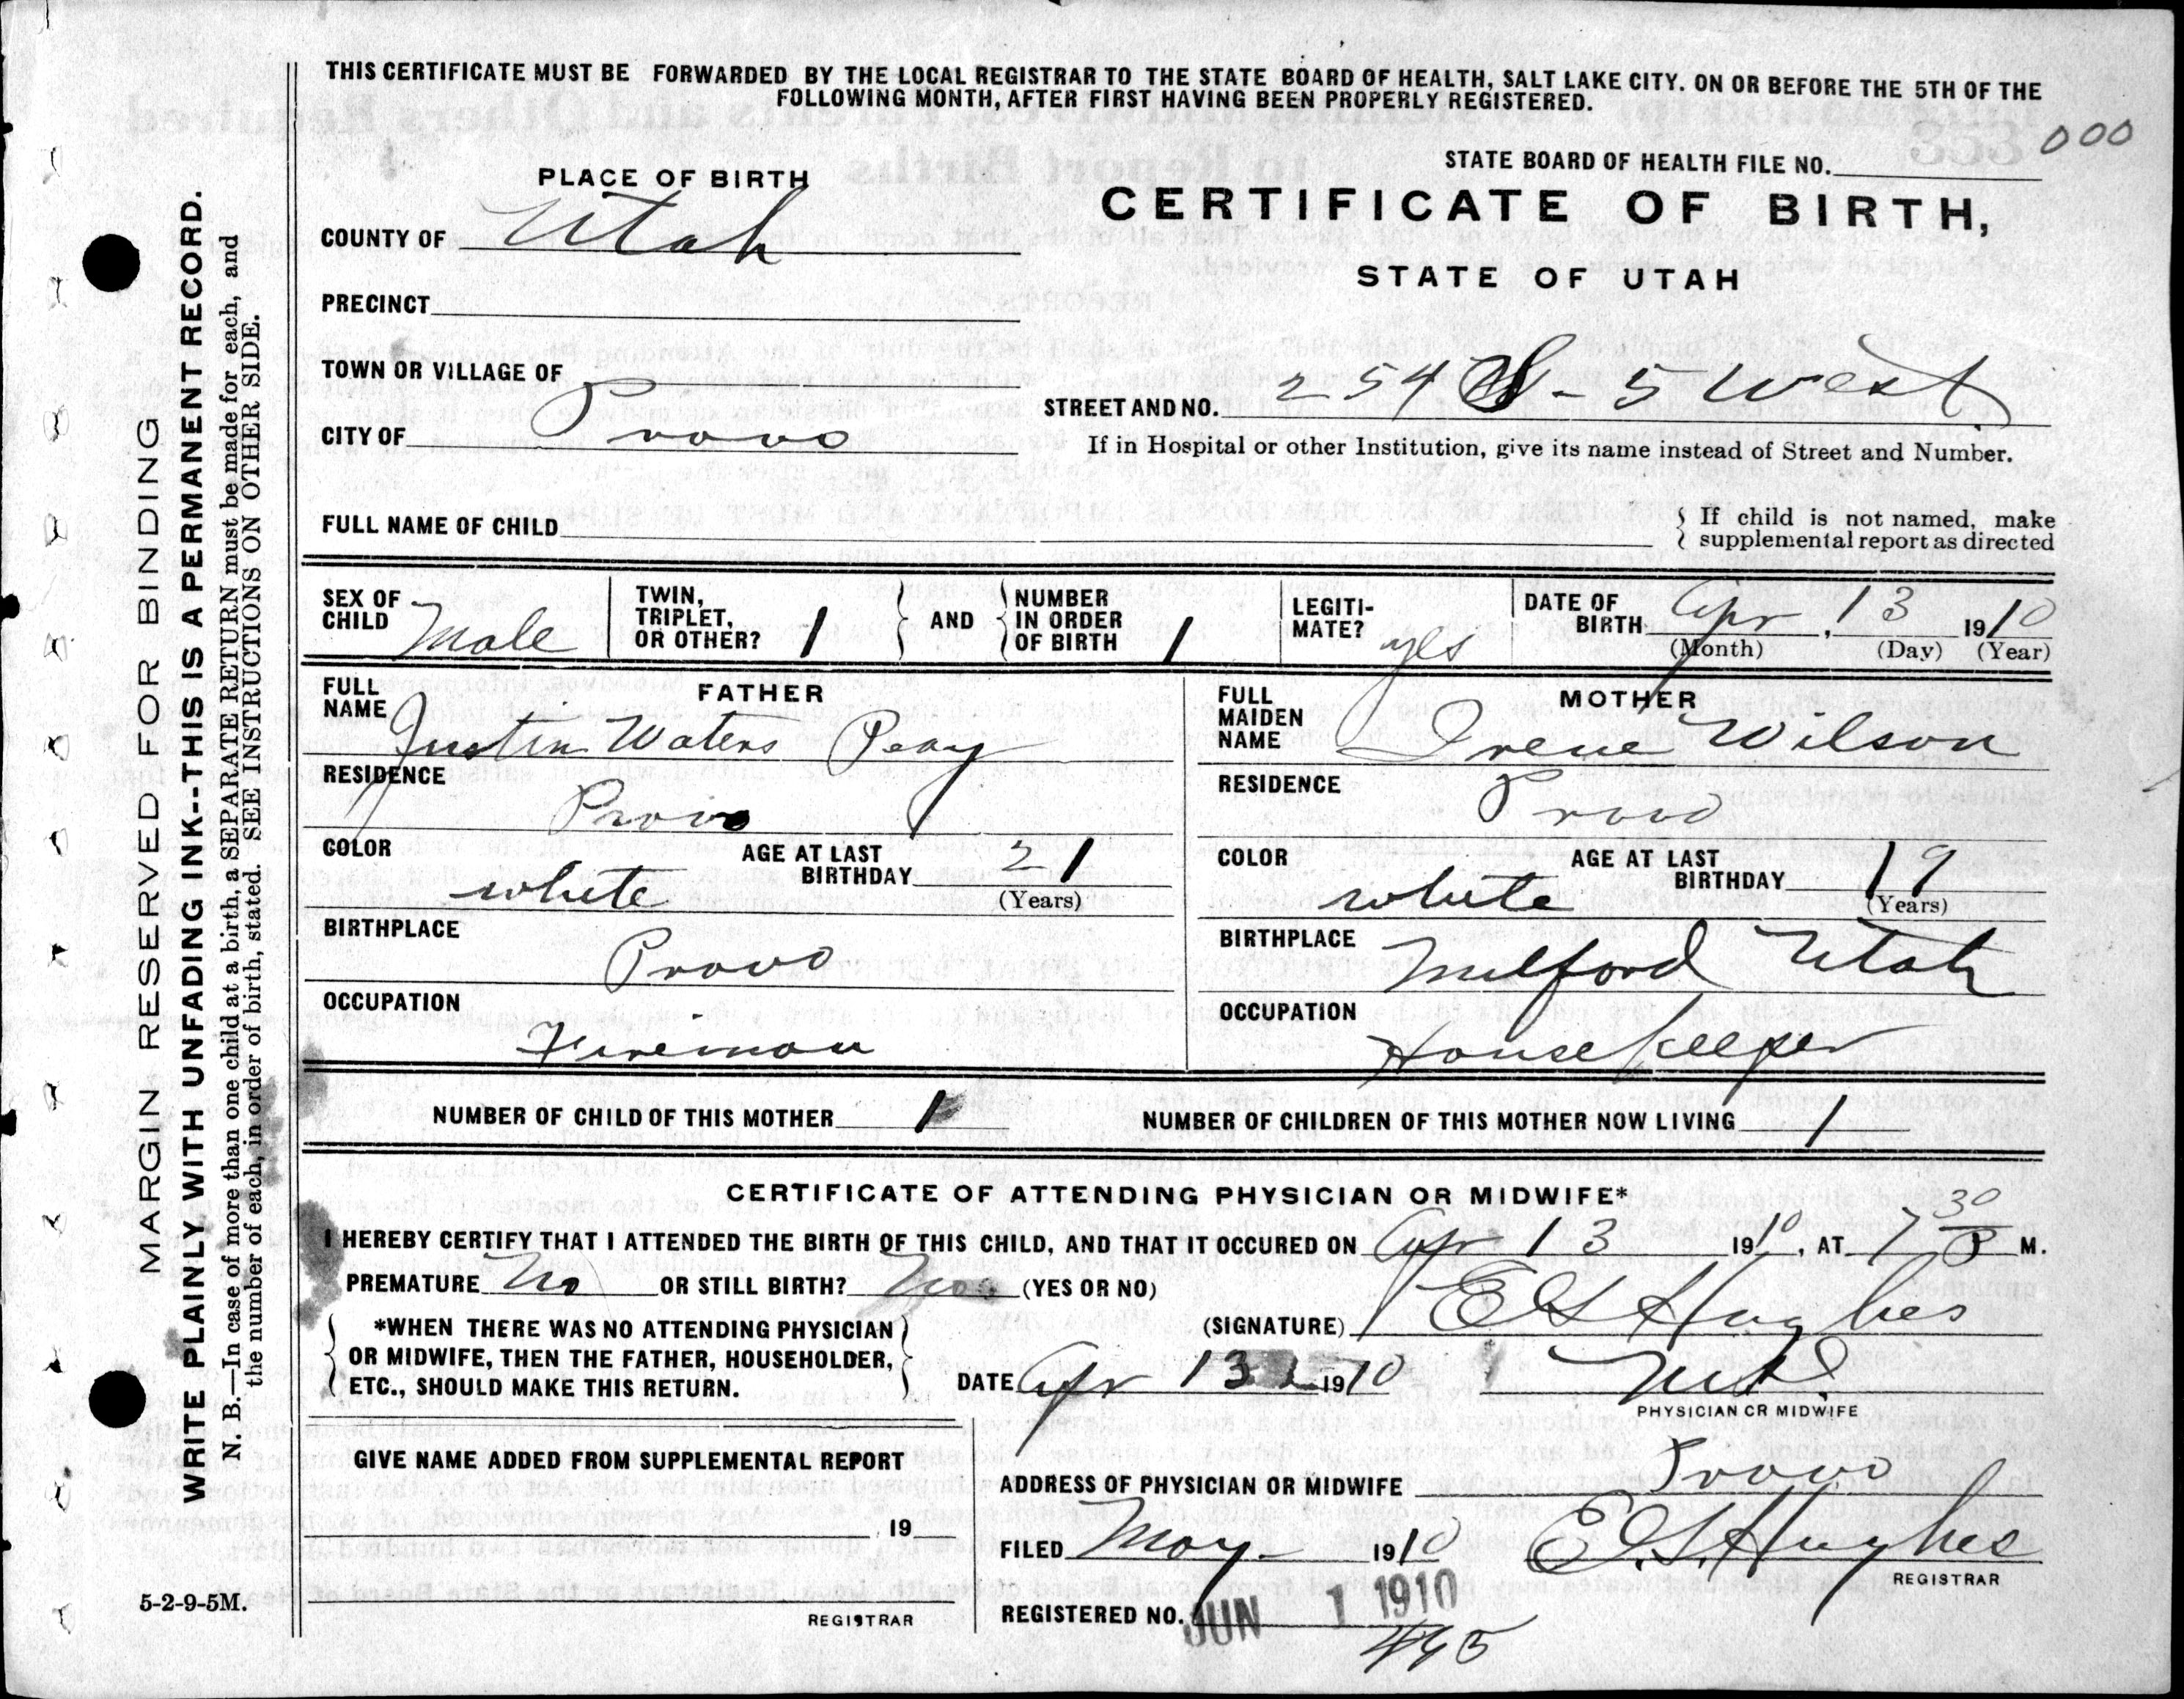 THIS CERTIFICATE MUST BE FORWARDED BY THE LOCAL REGISTRAR TO THE STATE BOARD OF HEALTH, SALT LAKE CITY. ON OR BEFORE THE 5TH OF THE
FOLLOWING MONTH, AFTER FIRST HAVING BEEN PROPERLY REGISTERED.
000
STATE BOARD OF HEALTH FILE NO.
PLACE OF BIRTH
CERTIFICATE OF BIRTH,
COUNTY OF Utah
STATE OF UTAH
PRECINCT
TOWN OR VILLAGE OF
STREET AND NO. 254 S - 5 West
CITY OF Provo
If in Hospital or other Institution, give its name instead of Street and Number.
FULL NAME OF CHILD
If child is not named, make
supplemental report as directed
SEX OF CHILD Male
TWIN, TRIPLET, OR OTHER? 1
AND
NUMBER IN ORDER OF BIRTH 1
LEGITI-MATE? yes
DATE OF BIRTH Apr, 13 1910
(Month) (Day) (Year)
FATHER
FULL NAME Justin Waters Peay
RESIDENCE Provo
COLOR white
AGE AT LAST BIRTHDAY 21
(Years)
BIRTHPLACE Provo
OCCUPATION Fireman
MOTHER
FULL MAIDEN NAME Irene Wilson
RESIDENCE Provo
COLOR white
AGE AT LAST BIRTHDAY 19
(Years)
BIRTHPLACE Milford Utah
OCCUPATION Housekeeper
NUMBER OF CHILD OF THIS MOTHER 1
NUMBER OF CHILDREN OF THIS MOTHER NOW LIVING 1
CERTIFICATE OF ATTENDING PHYSICIAN OR MIDWIFE*
I HEREBY CERTIFY THAT I ATTENDED THE BIRTH OF THIS CHILD, AND THAT IT OCCURED ON Apr 13 1910, AT 7 30 P M.
PREMATURE No OR STILL BIRTH? No (YES OR NO)
(SIGNATURE) E G Hughes
*WHEN THERE WAS NO ATTENDING PHYSICIAN
OR MIDWIFE, THEN THE FATHER, HOUSEHOLDER,
ETC., SHOULD MAKE THIS RETURN.
DATE Apr 13 1910
M.D.
PHYSICIAN OR MIDWIFE
GIVE NAME ADDED FROM SUPPLEMENTAL REPORT
19
REGISTRAR
ADDRESS OF PHYSICIAN OR MIDWIFE Provo
FILED May 1910
E.G. Hughes
REGISTRAR
REGISTERED NO.
JUN 1 1910
445
MARGIN RESERVED FOR BINDING
WRITE PLAINLY WITH UNFADING INK--THIS IS A PERMANENT RECORD.
N. B.—In case of more than one child at a birth, a SEPARATE RETURN must be made for each, and
the number of each, in order of birth, stated. SEE INSTRUCTIONS ON OTHER SIDE.
5-2-9-5M.